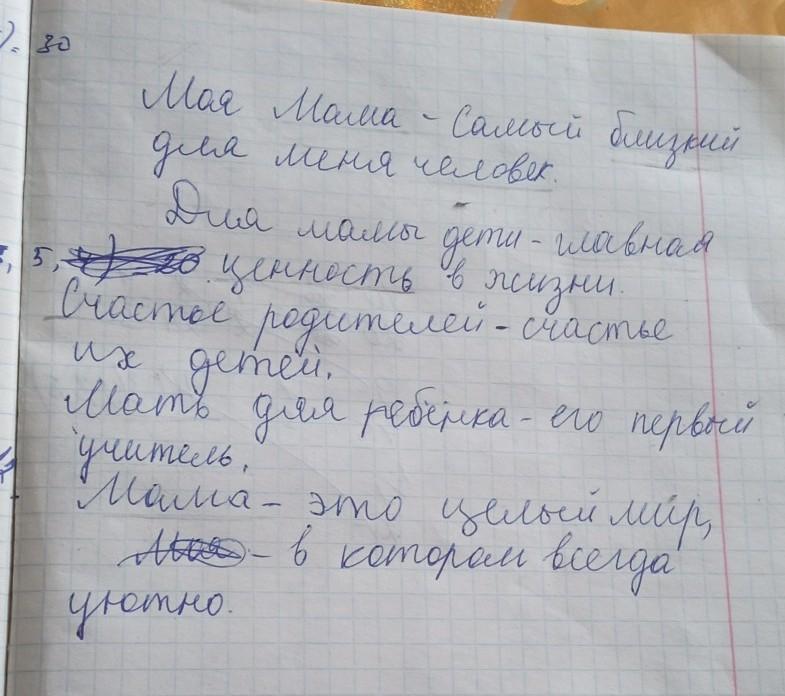 ). 30
Моя Мама - Самый близкий
для меня человек.
Для мамы дети - главная
5, ценность в жизни.
Счастье родителей - счастье
их детей.
Мать для ребёнка - его первый
учитель.
Мама - это целый мир,
Моя - в котором всегда
уютно.